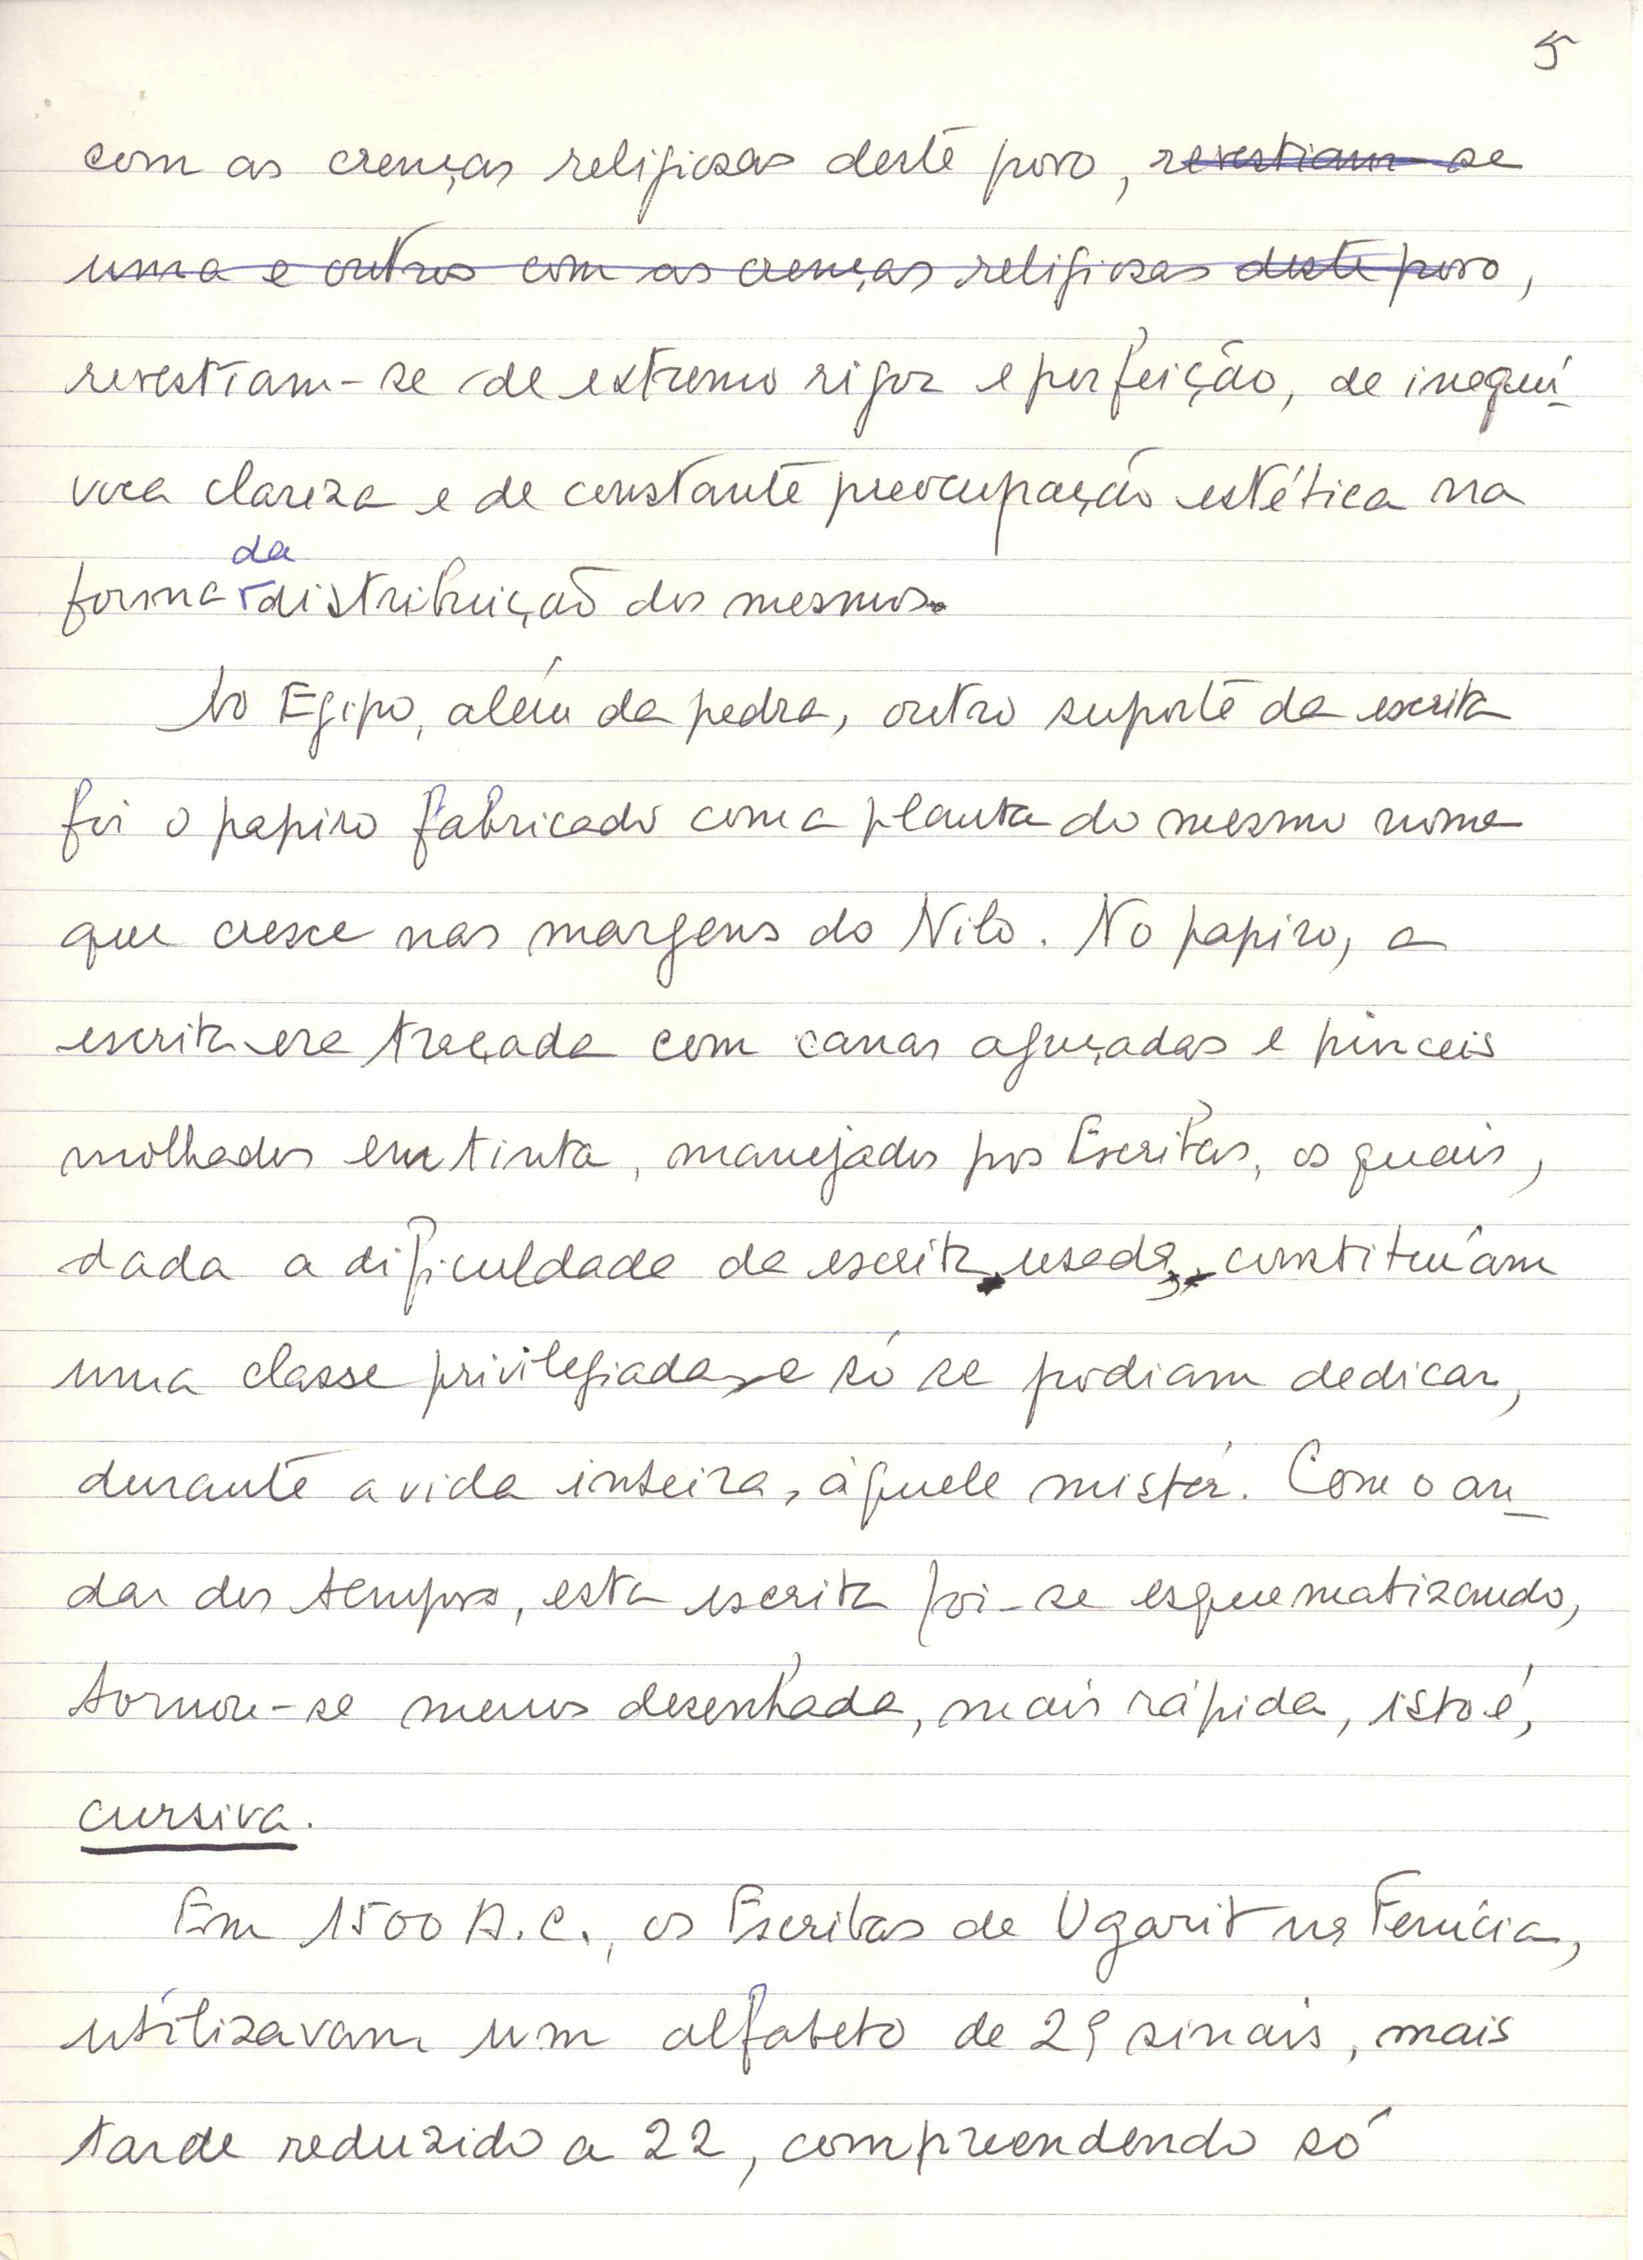 5
com as crenças religiosas deste povo, revestiam-se
uma e outros com as crenças religiosas deste povo,
revestiam-se de extremo rigor e perfeição, de inequí-
voca clareza e de constante preocupação estética na
da
forma distribuição dos mesmos.
No Egipo, além da pedra, outro suporte da escrita
foi o papiro fabricado com a planta do mesmo nome
que cresce nas margens do Nilo. No papiro, a
escrita era traçada com canas aguçadas e pinceis
molhados em tinta, manejados pos Escribas, os quais,
dada a dificuldade da escrita usada, constituíam
uma classe privilegiada, e só se podiam dedicar,
durante a vida inteira, àquele mistér. Com o an-
dar dos tempos, esta escrita foi-se esquematizando,
tornou-se menos desenhada, mais rápida, isto é,
cursiva.
Em 1500 A.C., os Escribas de Ugarit na Fenícia,
utilizavam um alfabeto de 29 sinais, mais
tarde reduzido a 22, compreendendo só